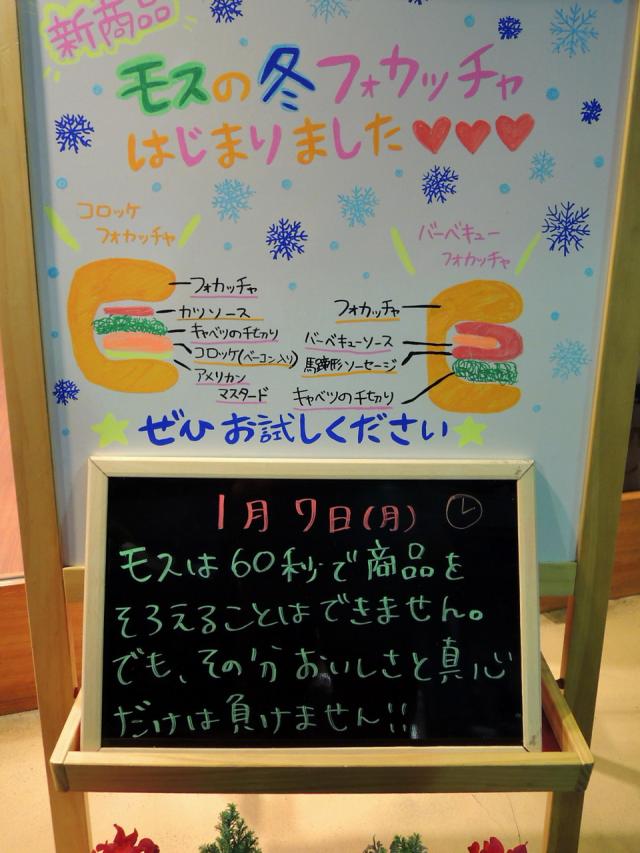 新商品
モスの冬フォカッチャ
はじまりました
コロッケ
フォカッチャ
フォカッチャ
カツソース
キャベツの千切り
コロッケ(ベーコン入り)
アメリカン
マスタード
バーベキュー
フォカッチャ
フォカッチャ
バーベキューソース
馬蹄形ソーセージ
キャベツの千切り
ぜひお試しください
1月7日(月)
モスは60秒で商品を
そろえることはできません。
でも、その分おいしさと真心
だけは負けません!!